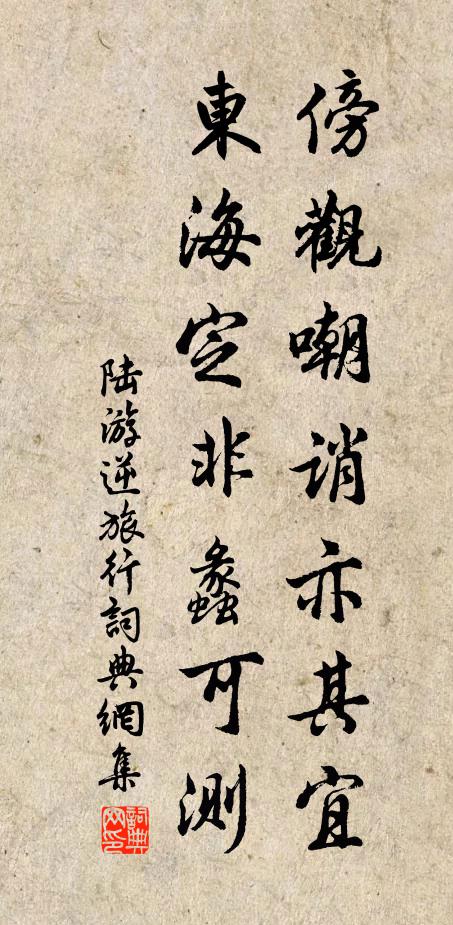 傍觀嘲誚亦其宜
東海定非蠡可測
陆游逆旅行詞典網集
詞典網印